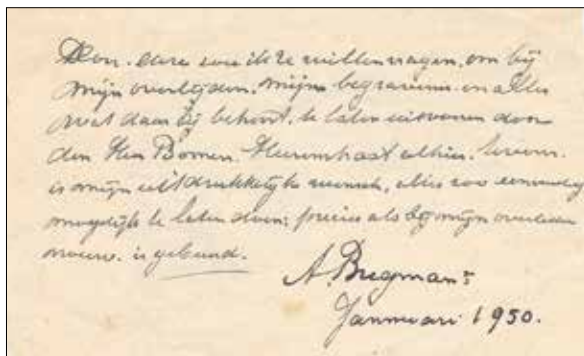 Door deze zou ik U willen vragen, om bij
mijn overlijden, mijn begravenis en alles
wat daar bij behoort, te laten uitvoeren door
den Heer Bomen. Heerenstraat alhier. tevens
is mijn uitdrukkelijke wensch, alles zoo eenvoudig
mogelijk te laten doen: precies als bij mijn overleden
vrouw. is gebeurd.
A. Bregman
Januari 1950.